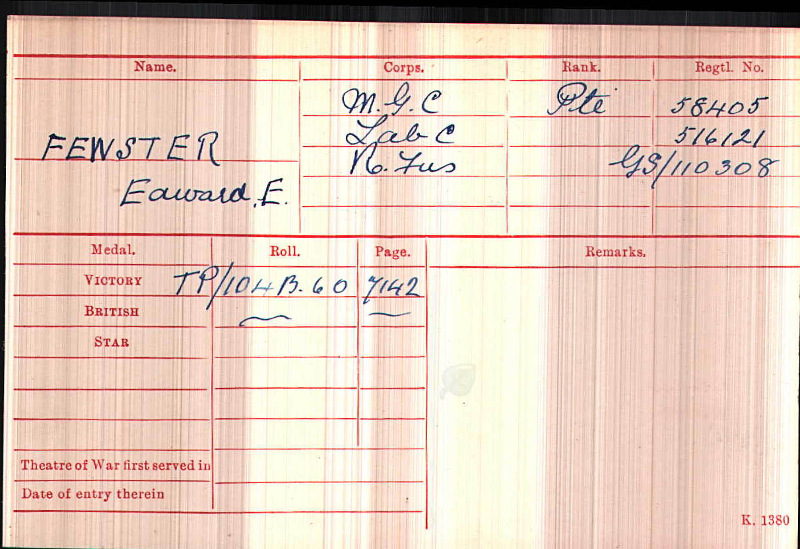 Name. Corps. Rank. Regtl. No.
M.G.C Pte 58405
Lab C 516121
FEWSTER R. Fus GS/110308
Edward. E.
Medal. Roll. Page. Remarks.
VICTORY TP/104B.60 7142
BRITISH
STAR
Theatre of War first served in
Date of entry therein
K. 1380